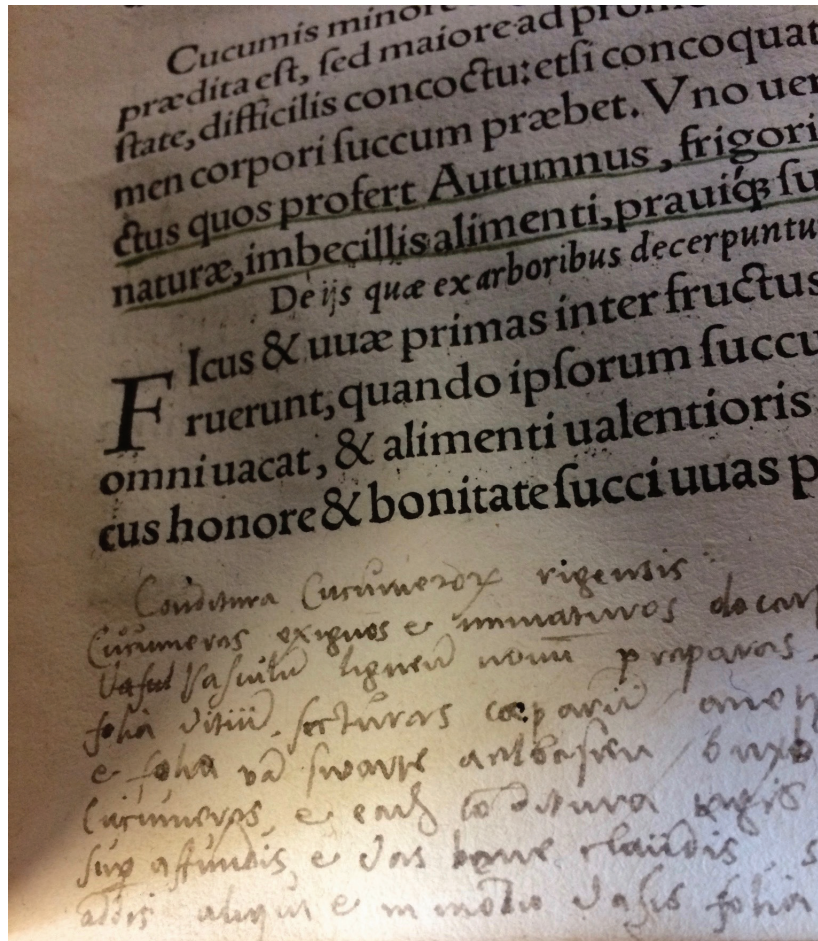 Cucumis minor
prædita eſt, ſed maiore ad pro
ſtate, difficilis concoctu: etſi concoquat
men corpori ſuccum præbet. Vno uer
ctus quos profert Autumnus, frigori
naturæ, imbecillis alimenti, prauiq́; ſu
De ijs quæ ex arboribus decerpuntu
FIcus & uuæ primas inter fructus
ruerunt, quando ipſorum ſuccu
omni uacat, & alimenti ualentioris
cus honore & bonitate ſucci uuas p
Conditura Cucumeroꝝ rigensis
Cucumeros exiguos e immaturos decar
Vasculū ligneū novū praparas.
folia vitiū. secturas
e folia
Cucumeros, e conditura
affundis, e vas bene claudis,
addis e in medio vasis folia